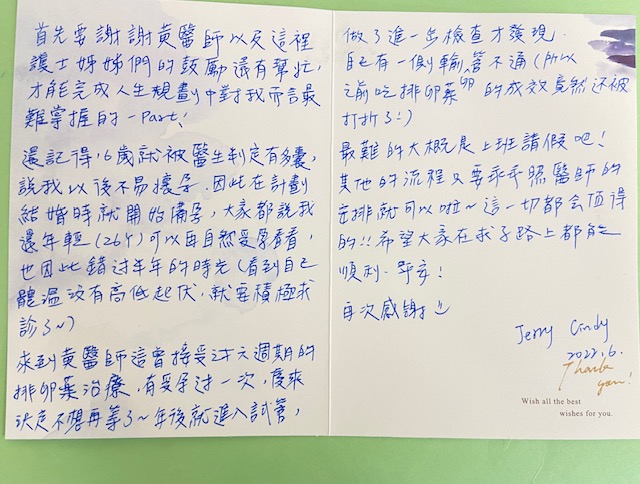 首先要謝謝黃醫師以及這裡
護士姊姊們的鼓勵還有幫忙,
才能完成人生規劃中對我而言最
難掌握的一Part!
還記得16歲就被醫生判定有多囊,
說我以後不易懷孕.因此在計劃
結婚時就開始備孕,大家都說我
還年輕(26Y)可以再自然受孕看看,
也因此錯過半年的時光(看到自己
體溫沒有高低起伏.就要積極求
診了~)
來到黃醫師這曾接受過六週期的
排卵藥治療,有受孕過一次,後來
決定不想再等了~年後就進入試管,
做了進一步檢查才發現.
自己有一側輸卵管不通(所以
之前吃排卵藥的成效竟然還被
打折了:)
最難的大概是上班請假吧!
其他的流程只要乖乖照醫師的
安排就可以啦~這一切都會值得
的!!希望大家在求子路上都能
順利.平安!
再次感謝
Jerry Cindy
2022.6.
Thank
you!
Wish all the best
wishes for you.